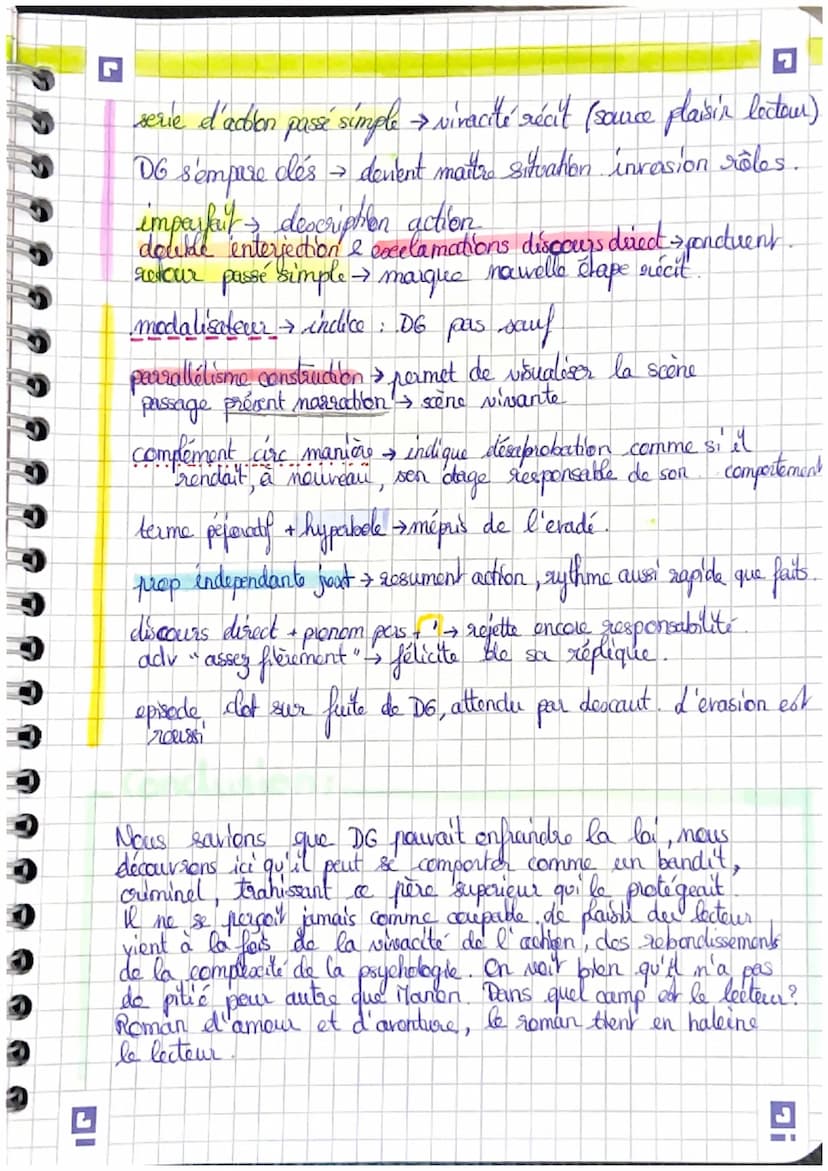 serie d'action passé simple → vivacité récit (source plaisir lecteur)
DG s'empare clés → devient maître situation. inversion rôles.
imparfait → description action
double interjection & exclamations discours direct → ponctuent.
retour passé simple → marque nouvelle étape récit.
modalisateur → indice : DG pas sauf
parrallélisme construction → permet de visualiser la scène
passage présent narration → scène vivante
complément circ manière → indique désaprobation comme si il
rendait, à nouveau, son otage responsable de son comportement
terme péjoratif + hyperbole → mépris de l'evadé.
prop independante juxt → resument action, rythme aussi rapide que faits.
discours direct + pronom pers + ' → rejette encore responsabilité.
adv "assez fièrement" → félicite de sa réplique.
episode clot sur fuite de DG, attendu par lescaut. L'evasion est
reussi
Conclusion :
Nous savions que DG pouvait enfraindre la loi, nous
découvrons ici qu'il peut se comporter comme un bandit,
criminel, trahissant ce père superieur qui le protégeait.
Il ne se perçoit jamais comme coupable. Le plaisir du lecteur
vient à la fois de la vivacité de l'action, des rebondissements
de la complexité de la psychologie. On voit bien qu'il n'a pas
de pitié pour autre que Manon. Dans quel camp est le lecteur?
Roman d'amour et d'aventure, le roman tient en haleine
le lecteur.